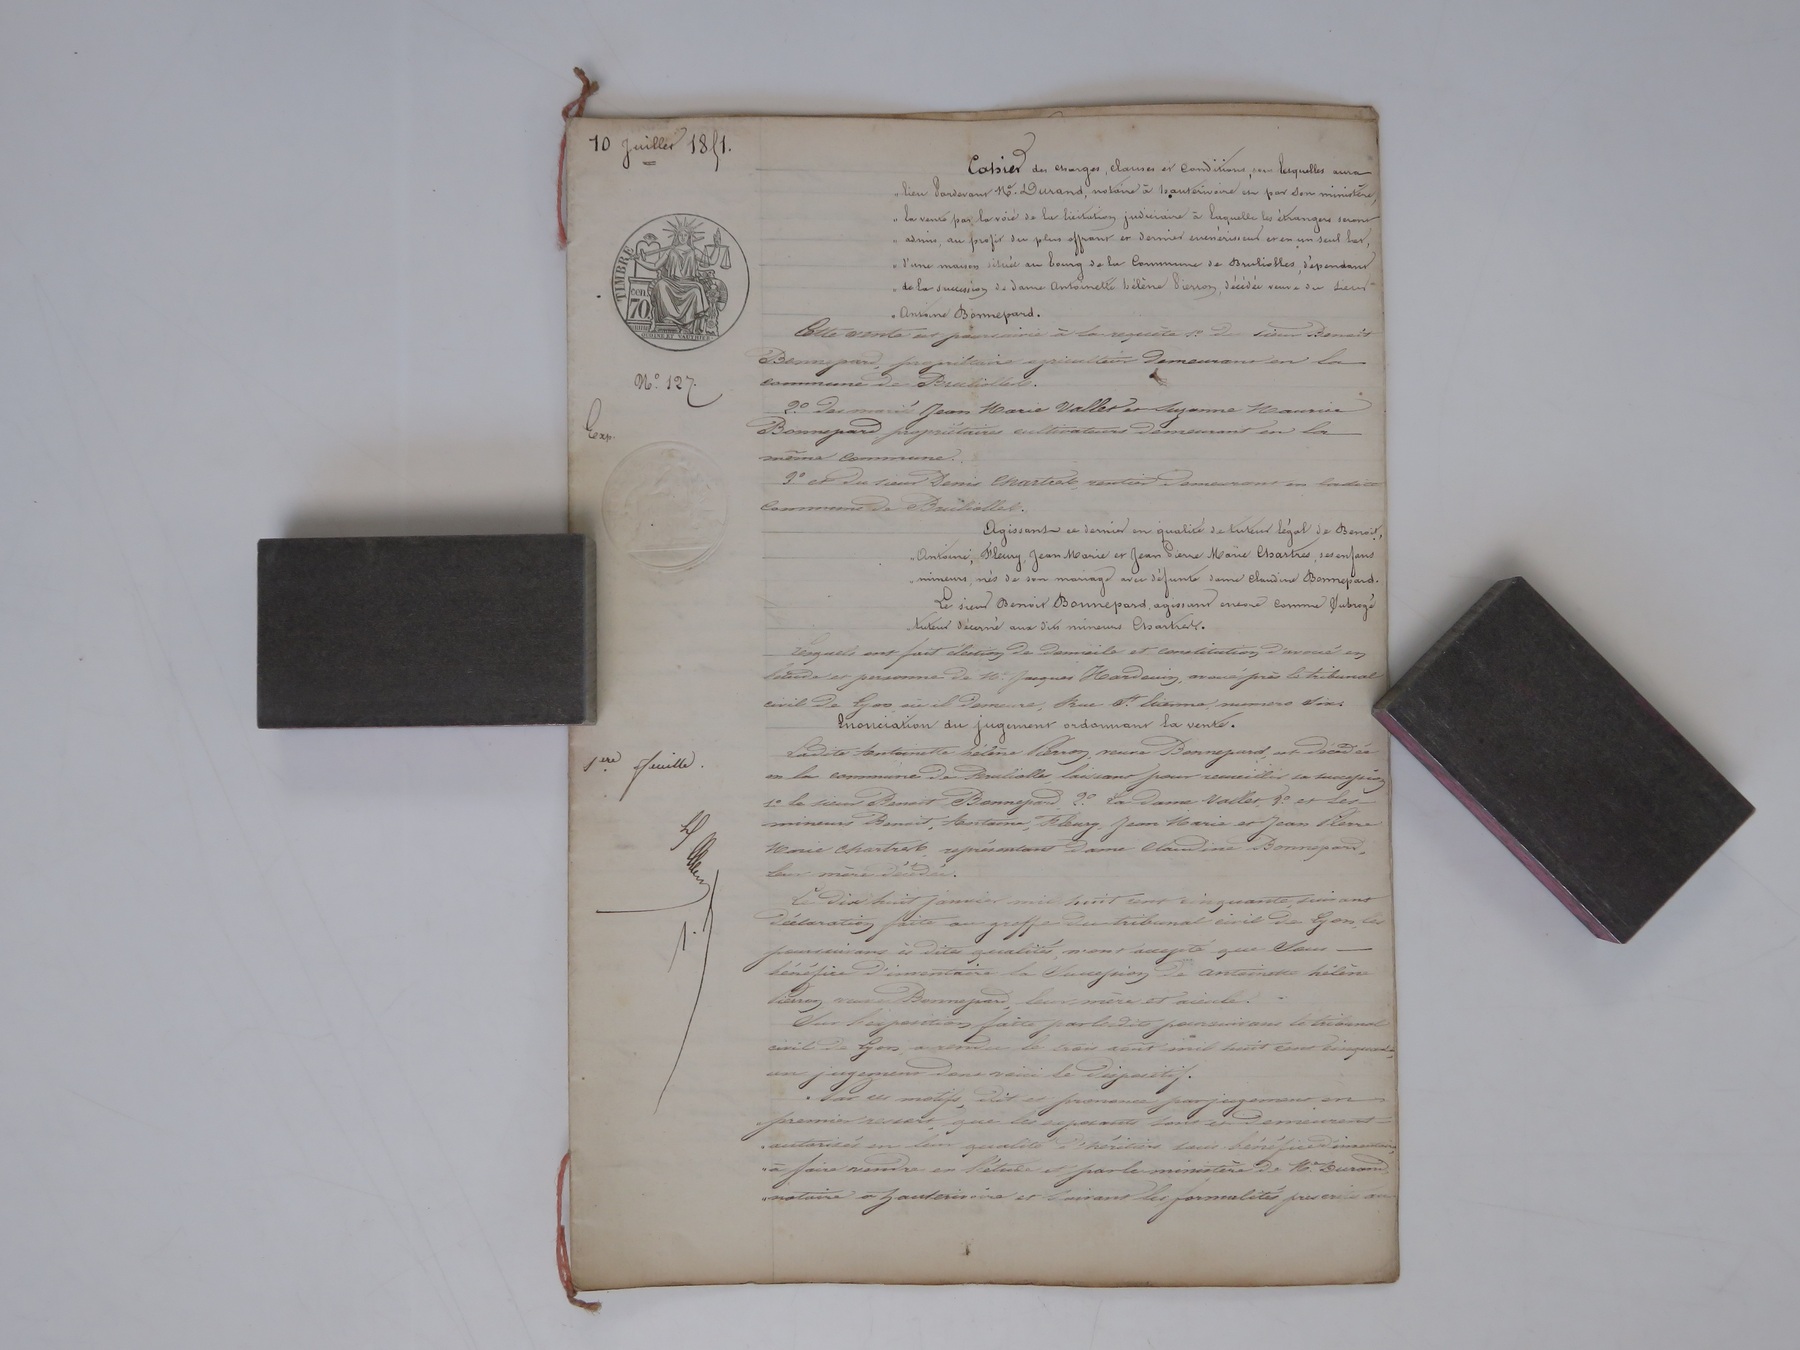 10 Juillet 1851.
TIMBRE
cen.
70
N.º 127.
Exp.
1ere feuille.
Cahier des charges, clauses et Conditions, sous lesquelles aura
lieu pardevant Me. Durand, notaire à hauterivoire et par son ministère,
la vente par la voie de la licitation judiciaire à laquelle les étrangers seront
admis, au profit du plus offrant et dernier enchérisseur et en un seul lot,
d'une maison située au bourg de la Commune de Brullioles, dépendant
de la succession de dame Antoinette hélène Pierron, décédée veuve du sieur
Antoine Bonnepard.
Cette vente est poursuivie à la requête 1º du sieur Benoit
Bonnepard, propriétaire agriculteur demeurant en la
commune de Brullioles.
2º des mariés Jean Marie Vallet et Suzanne Maurice
Bonnepard propriétaires cultivateurs demeurant en la
même commune.
3º et du sieur Denis Chartret, rentier demeurant en ladite
Commune de Brullioles.
Agissant ce dernier en qualité de tuteur légal de Benoit,
Antoine, Fleury, Jean Marie et Jean Pierre Marie Chartret, ses enfans
mineurs, nés de son mariage avec défunte dame Claudine Bonnepard.
Le sieur Benoit Bonnepard, agissant encore comme Subrogé
tuteur décerné aux dits mineurs Chartret.
Lesquels ont fait élection de domicile et constitution d'avoué en
l'étude et personne de Me. Jacques Hardouin, avoué près le tribunal
civil de Lyon, où il demeure, Rue St. Etienne, numéro six.
Enonciation du jugement ordonnant la vente.
Ladite Antoinette hélène Pierron, veuve Bonnepard, est décédée
en la commune de Brullioles laissant pour recueillir sa succession
1º le sieur Benoit Bonnepard, 2º La dame Vallet 3º et les
mineurs Benoit, Antoine, Fleury, Jean Marie et Jean Pierre
Marie Chartret, représentant dame Claudine Bonnepard,
leur mère décédée.
Le dix huit janvier mil huit cent cinquante, suivant
déclaration faite au greffe du tribunal civil de Lyon, les
poursuivans ès dites qualités, n'ont accepté que Sous
bénéfice d'inventaire la Succession de Antoinette hélène
Pierron veuve Bonnepard, leur mère et aïeule.
Sur l'exposition faite par lesdits poursuivans le tribunal
civil de Lyon, a rendu le trois août mil huit cent cinquante,
un jugement dont voici le dispositif.
Par ces motifs, dit et prononce par jugement en
premier ressort, que les exposants sont et demeurent
autorisés en leur qualité d'héritiers sous bénéfice d'inventaire,
à faire vendre en l'étude et par le ministère de Me Durand
notaire à hauterivoire et suivant les formalités prescrites au